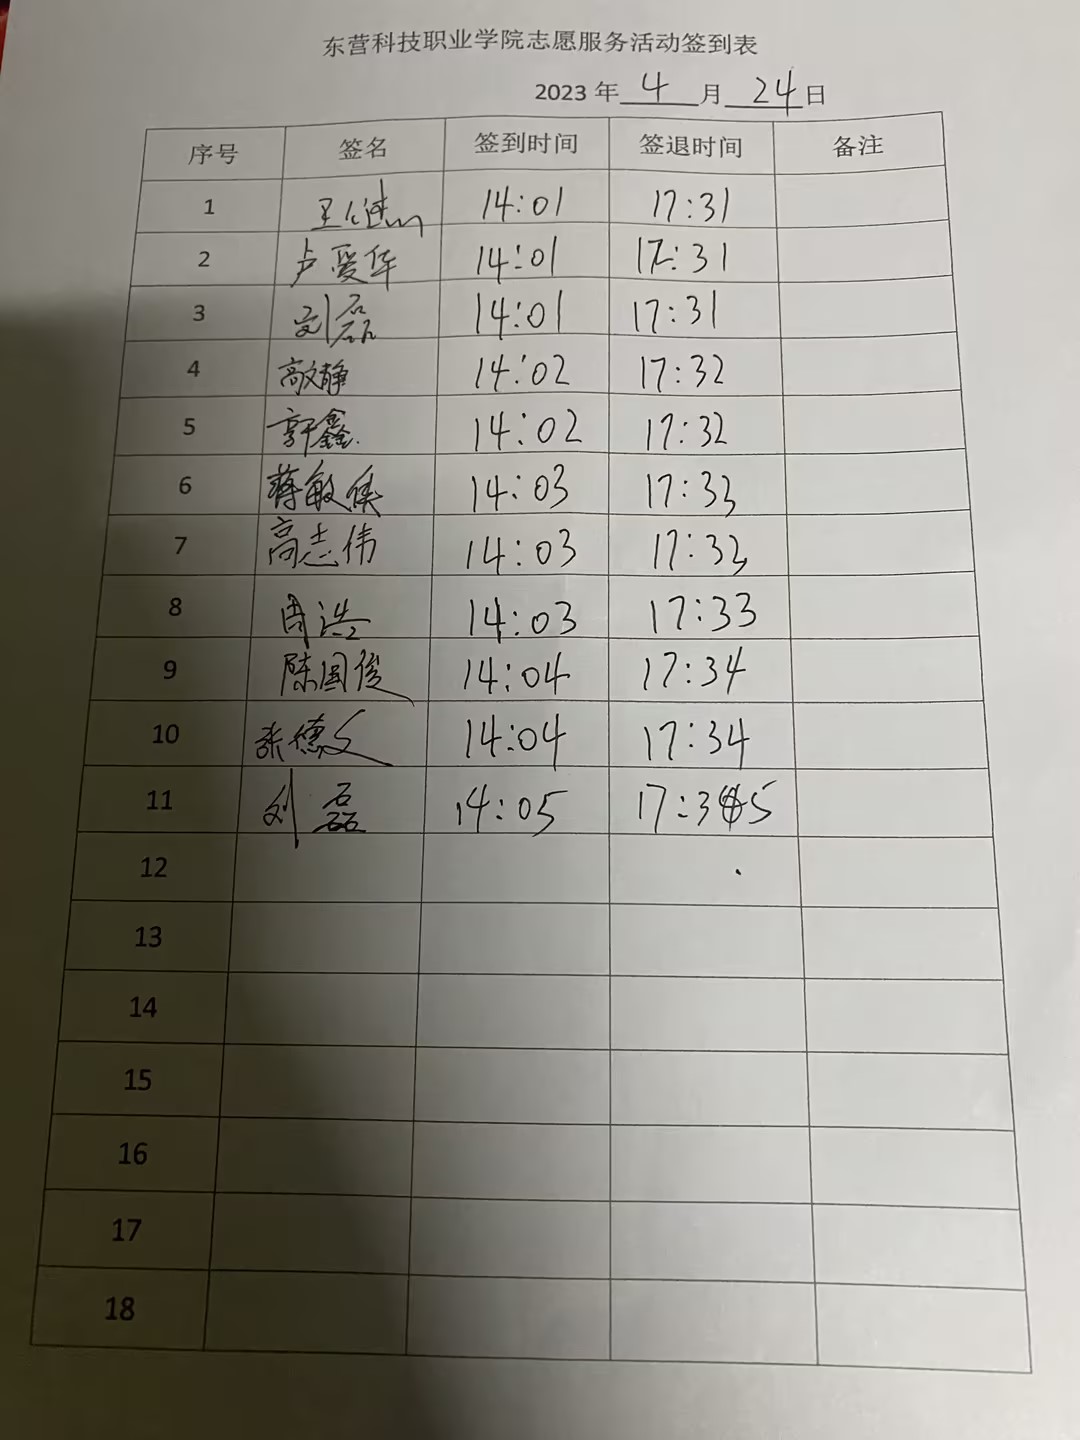 东营科技职业学院志愿服务活动签到表
2023 年 4 月 24 日
序号 签名 签到时间 签退时间 备注
1 14:01 17:31
2 卢爱华 14:01 17:31
3 刘磊 14:01 17:31
4 高文静 14:02 17:32
5 郭鑫 14:02 17:32
6 蒋敏 14:03 17:33
7 高志伟 14:03 17:33
8 周浩 14:03 17:33
9 陈国俊 14:04 17:34
10 张德文 14:04 17:34
11 刘磊 14:05 17:35
12
13
14
15
16
17
18